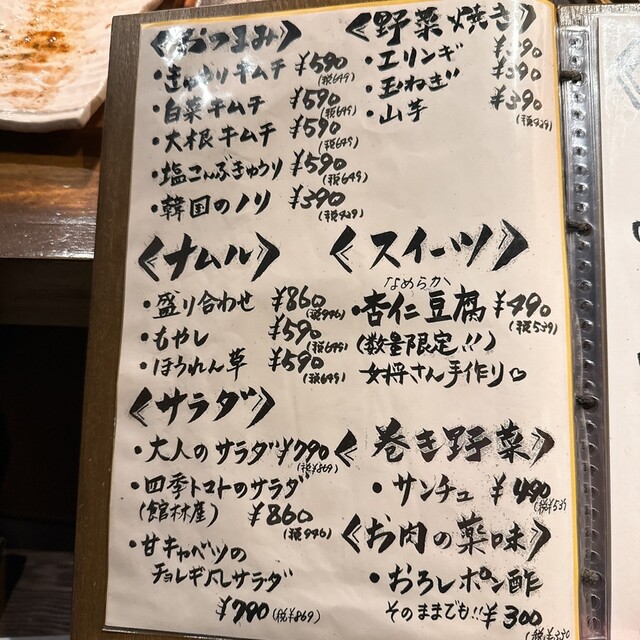 《おつまみ》
・きゅうりキムチ ¥590
(税649)
・白菜キムチ ¥590
(税649)
・大根キムチ ¥590
(税649)
・塩こんぶきゅうり ¥590
(税649)
・韓国のノリ ¥390
(税429)
《ナムル》
・盛り合わせ ¥860
(税946)
・もやし ¥590
(税649)
・ほうれん草 ¥590
(税649)
《サラダ》
・大人のサラダ ¥790
(税¥869)
・四季トマトのサラダ
(館林産) ¥860
(税946)
・甘キャベツの
チョレギ風サラダ
¥790 (税¥869)
《野菜焼き》
・エリンギ ¥390
・玉ねぎ ¥390
・山芋 ¥390
(税429)
《スイーツ》
なめらか
・杏仁豆腐 ¥490
(税539)
(数量限定!!)
女将さん手作り♡
《巻き野菜》
・サンチュ ¥490
(税¥539
《お肉の薬味》
・おろしポン酢
そのままでも!! ¥300
(税¥330